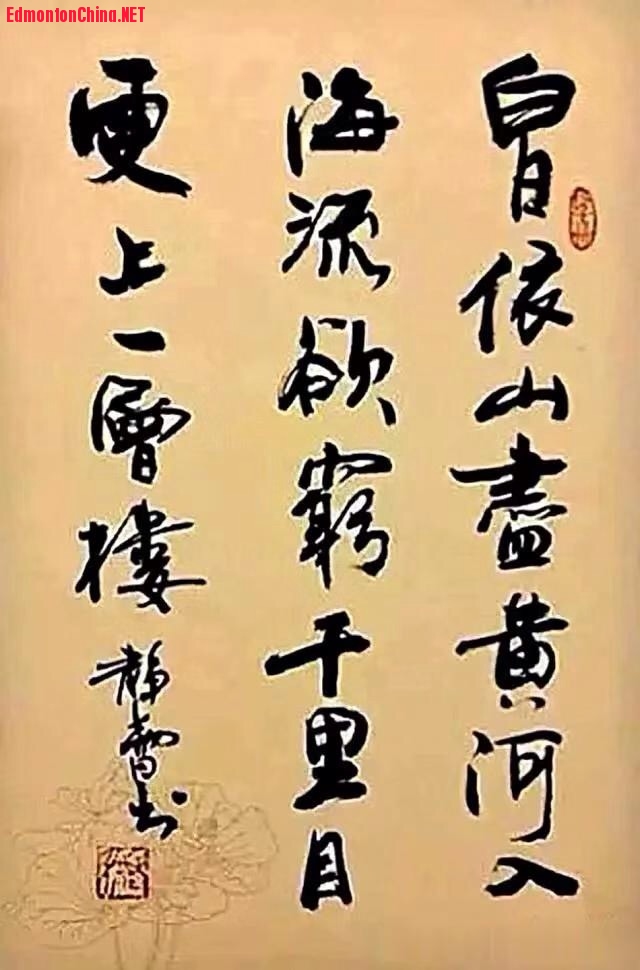 EdmontonChina.NET
白日依山盡黄河入
海流欲窮千里目
更上一層樓
靜雪书